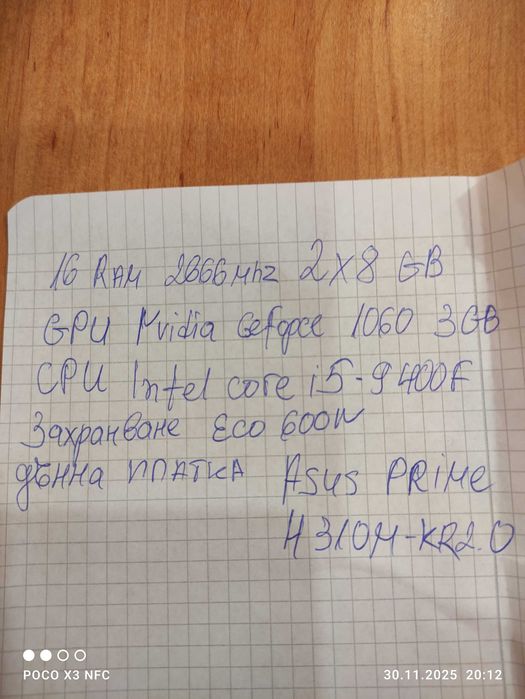 16 RAM 2666Mhz 2x8 GB
GPU Nvidia Geforce 1060 3GB
CPU Intel core i5-9400F
Захранване Eco 600W
дънна платка Asus PRIME
H310M-KR2.0
POCO X3 NFC
30.11.2025 20:12